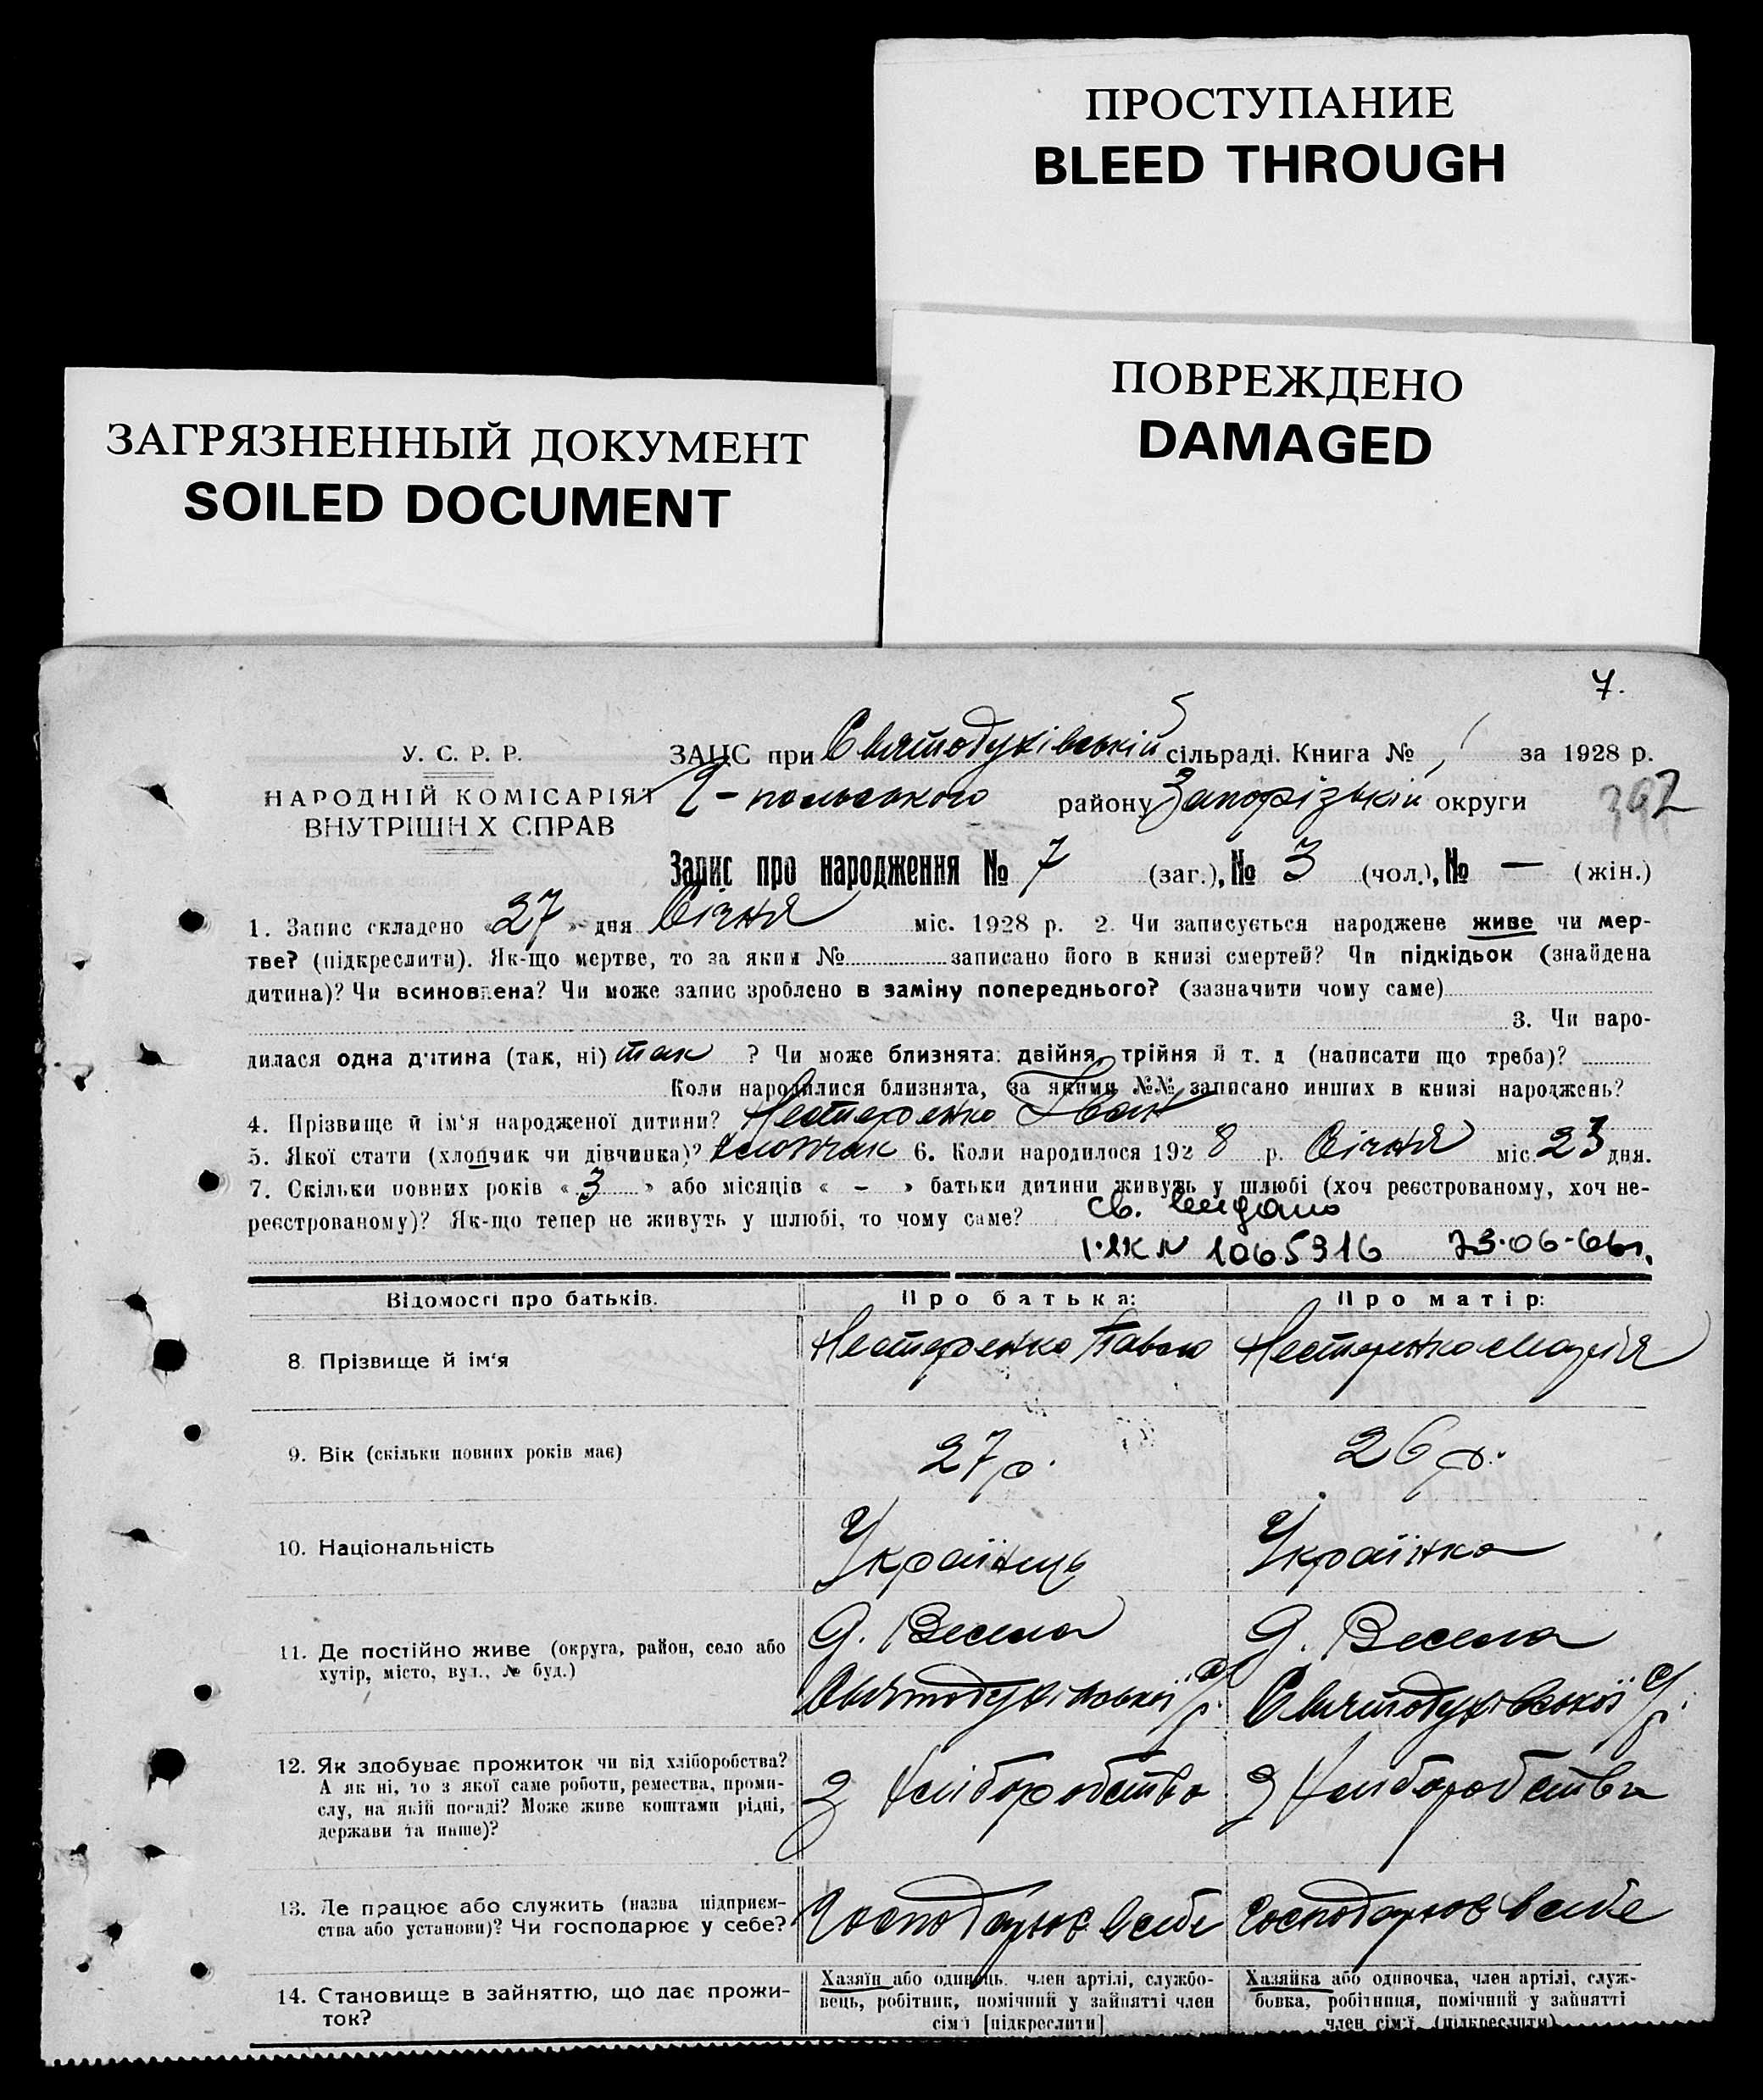 ПРОСТУПАНИЕ
BLEED THROUGH
ПОВРЕЖДЕНО
DAMAGED
ЗАГРЯЗНЕННЫЙ ДОКУМЕНТ
SOILED DOCUMENT
7.
У. С. Р. Р.
НАРОДНІЙ КОМІСАРІЯТ
ВНУТРІШН Х СПРАВ
ЗАЦС при Святодухівській сільраді. Книга № 1 за 1928 р.
Г-польського району Запорізькій округи
Запис про народження № 7 (заг.), № 3 (чол.), № — (жін.)
1. Запис складено «27» дня Січня міс. 1928 р. 2. Чи записується народжене живе чи мер-
тве? (підкреслити). Як-що мертве, то за яким № записано його в книзі смертей? Чи підкідьок (знайдена
дитина)? Чи всиновлена? Чи може запис зроблено в заміну попереднього? (зазначити чому саме)
3. Чи наро-
дилася одна дитина (так, ні) так ? Чи може близнята: двійня, трійня й т. д (написати що треба)?
Коли народилися близнята, за якими №№ записано инших в книзі народжень?
4. Прізвище й ім'я народженої дитини? Нестеренко Іван
5. Якої стати (хлопчик чи дівчинка)? хлопчик 6. Коли народилося 1928 р. Січня міс. 23 дня.
7. Скільки повних років «3» або місяців « - » батьки дитини живуть у шлюбі (хоч реєстрованому, хоч не-
реєстрованому)? Як-що тепер не живуть у шлюбі, то чому саме?
св. видано
№ 1065316
Відомості про батьків.
Про батька:
Про матір:
8. Прізвище й ім'я
Нестеренко Павло
Нестеренко Марія
9. Вік (скільки повних років має)
27 р.
26 р.
10. Національність
Українець
Українка
11. Де постійно живе (округа, район, село або
хутір, місто, вул., № буд.)
Весела
Святодухівської с/р.
Весела
Святодухівської с/р.
12. Як здобуває прожиток чи від хліборобства?
А як ні, то з якої саме роботи, ремества, проми-
слу, на якій посаді? Може живе коштами рідні,
держави та инше)?
З хліборобства
З хліборобства
13. Де працює або служить (назва підприєм-
ства або установи)? Чи господарює у себе?
Господарює в себе
Господарює в себе
14. Становище в зайняттю, що дає прожи-
ток?
Хазяїн або одинець. член артілі, службо-
вець, робітник, помічний у зайнятті член
сім'ї [підкреслити]
Хазяйка або одиночка, член артілі, служ-
бовка, робітниця, помічний у зайнятті
член сім'ї (підкреслити)